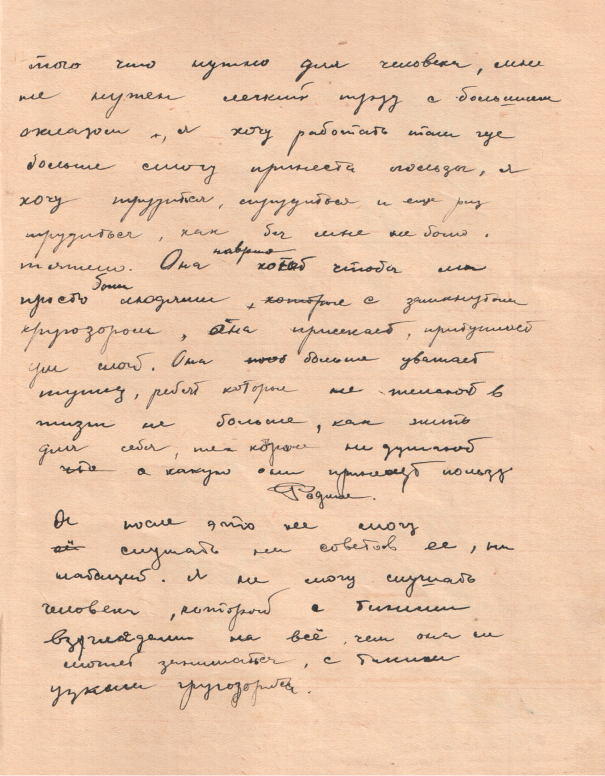 того что нужно для человека, мне
не нужен легкий труд с большим
окладом, я хочу работать там где
больше смогу принести пользы, я
хочу трудиться, трудиться, и еще раз
трудиться, как бы мне не было
тяжело. Она наврно чтобы мы
просто были людьми, которые с замкнутым
кругозором, она пресекает, притупляет
ум мой. Она больше уважает
ребят которые не желают в
жизни не больше, как жить
для себя, тех которые не думают
а какую они принесут пользу
Родине.
Я после этого не могу
слушать ни советов ее, ни
нотаций. Я не могу слушать
человека, который с такими
взглядами на всё, чем она не
может заниматься, с таким
узким кругозором.